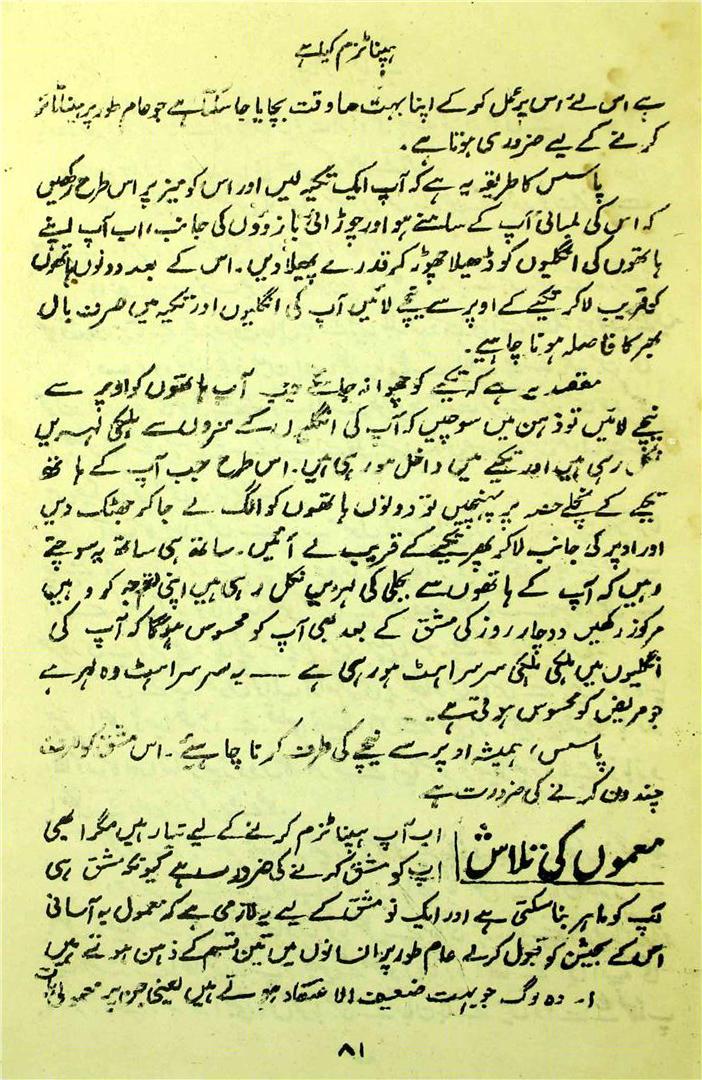 ہپناٹزم کیا ہے
ہے اس لئے اس پر عمل کر کے اپنا بہت سا وقت بچایا جا سکتا ہے جو عام طور پر ہپناٹائز
کرنے کے لیے ضروری ہوتا ہے۔
پاسس کا طریقہ یہ ہے کہ آپ ایک تکیہ لیں اور اس کو میز پر اس طرح رکھیں
کہ اس کی لمبائی آپ کے سامنے ہو اور چوڑائی بازوؤں کی جانب، اب آپ اپنے
ہاتھوں کی انگلیوں کو ڈھیلا چھوڑ کر قدرے پھیلا دیں۔ اس کے بعد دونوں ہاتھوں
کو قریب لا کر تکیے کے اوپر سے نیچے لائیں آپ کی انگلیوں اور تکیہ میں صرف بال
بھر کا فاصلہ ہونا چاہیے۔
مقصد یہ ہے کہ تکیے کو چھوا نہ جائے جب آپ ہاتھوں کو اوپر سے
نیچے لائیں تو ذہن میں سوچیں کہ آپ کی انگلیوں کے سروں سے ہلکی لہریں
نکل رہی ہیں اور تکیے میں داخل ہو رہی ہیں۔ اس طرح جب آپ کے ہاتھ
تکیے کے نچلے حصہ پر پہنچیں تو دونوں ہاتھوں کو الگ لے جا کر جھٹک دیں
اور اوپر کی جانب لا کر پھر تکیے کے قریب لے آئیں۔ ساتھ ہی ساتھ یہ سوچتے
رہیں کہ آپ کے ہاتھوں سے بجلی کی لہریں نکل رہی ہیں اپنی توجہ کو وہیں
مرکوز رکھیں دو چار روز کی مشق کے بعد ہی آپ کو محسوس ہوگا کہ آپ کی
انگلیوں میں ہلکی ہلکی سرسراہٹ ہو رہی ہے — یہ سرسراہٹ وہ لہر ہے
جو مریض کو محسوس ہوتی ہے۔
پاسس، ہمیشہ اوپر سے نیچے کی طرف کرنا چاہیئے۔ اس مشق کو صرف
چند دن کرنے کی ضرورت ہے
معموں کی تلاش
اب آپ ہپناٹزم کرنے کے لیے تیار ہیں مگر ابھی
آپ کو مشق کرنے کی ضرورت ہے کیونکہ مشق ہی
آپ کو ماہر بنا سکتی ہے اور ایک نو مشق کے لیے یہ لازمی ہے کہ معمول بہ آسانی
اس کے سجیشن کو قبول کرلے عام طور پر انسانوں میں تین قسم کے ذہن ہوتے ہیں
۱۔ وہ لوگ جو بہت ضعیف الاعتقاد ہوتے ہیں یعنی جن پر معمولی بات
۸۱